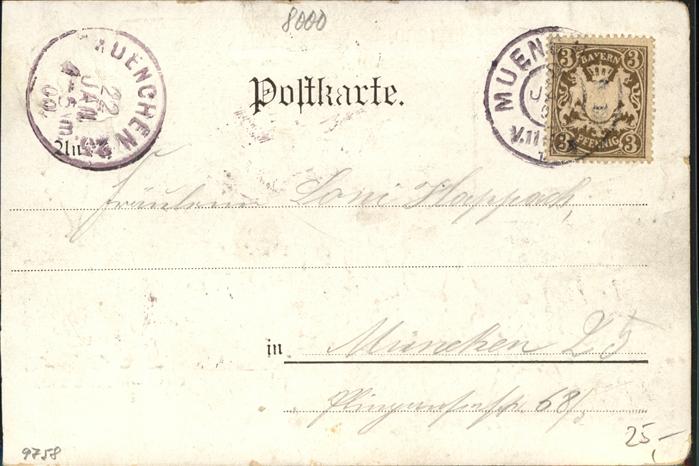 8000
MUENCHEN 23
22
JAN
4-5 Nm
00
MUEN
V.11
3 BAYERN 3
3 PFENNIG 3
Postkarte.
An
Fräulein Loni Happach,
in München
68/
25,-
9758